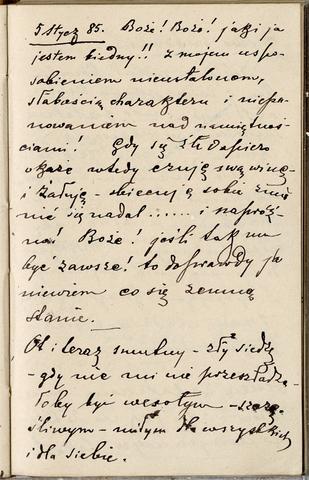 5 Stycz 85. Boże! Boże! jaki ja
jestem biedny!! z mojem uspo-
sobieniem nieustalonem,
słabością charakteru i niepa-
nowaniem nad namiętnoś-
ciami! Gdy się złe dopiero
okaże wtedy czuję swą winę
i żałuję - obiecuję sobie zmie
nić się nadal ...... i napróż-
no! Boże! jeśli tak ma
być zawsze! to doprawdy ja
niewiem co się zemną
stanie.
Ot i teraz smutny - zły siedzę
- gdy nic mi nie przeszkadza
łoby być wesołym - szczę-
śliwym - miłym dla wszystkich
i dla siebie.